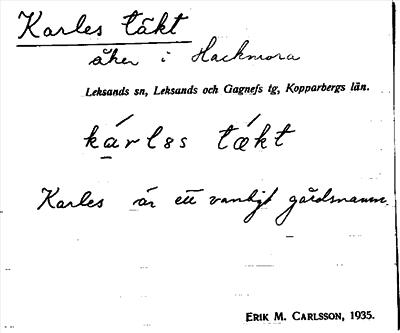 Karles täkt
åker i Hackmora
Leksands sn, Leksands och Gagnefs tg, Kopparbergs län.
kárlɛs tǽkt
Karles är ett vanligt gårdsnamn.
ERIK M. CARLSSON, 1935.